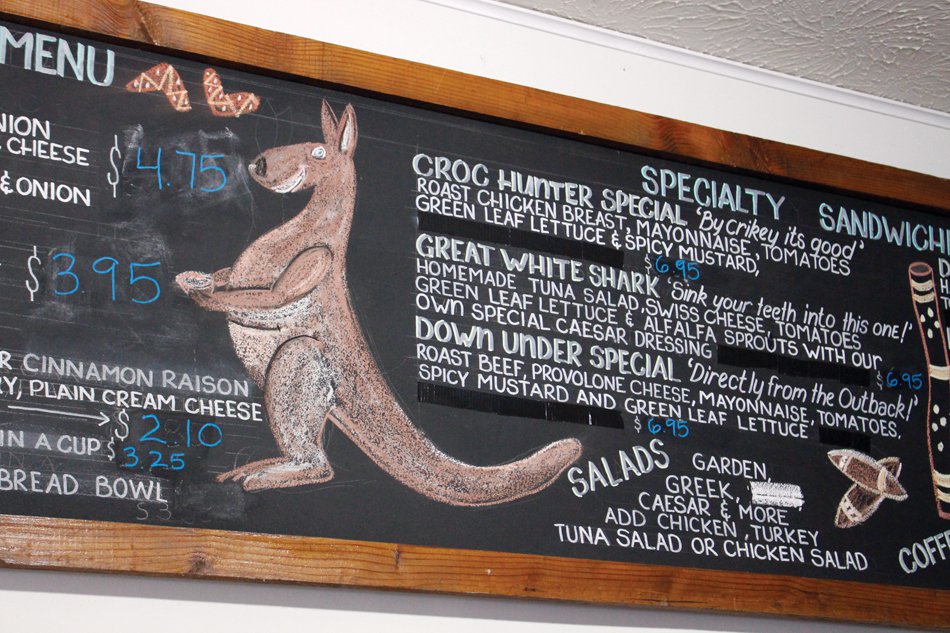 MENU
NION
& CHEESE
$4.75
& ONION
$3.95
R CINNAMON RAISON
RY, PLAIN CREAM CHEESE
$2.10
IN A CUP $3.25
BREAD BOWL
SPECIALTY SANDWICHE
CROC HUNTER SPECIAL 'By crikey its good'
ROAST CHICKEN BREAST, MAYONNAISE, TOMATOES
GREEN LEAF LETTUCE & SPICY MUSTARD,
$6.95
GREAT WHITE SHARK 'Sink your teeth into this one!'
HOMEMADE TUNA SALAD, SWISS CHEESE, TOMATOES
GREEN LEAF LETTUCE & ALFALFA SPROUTS WITH OUR
OWN SPECIAL CAESAR DRESSING
$6.95
DOWN UNDER SPECIAL 'Directly from the Outback!'
ROAST BEEF, PROVOLONE CHEESE, MAYONNAISE, TOMATOES,
SPICY MUSTARD AND GREEN LEAF LETTUCE
$6.95
SALADS
GARDEN,
GREEK,
CAESAR & MORE
ADD CHICKEN, TURKEY
TUNA SALAD OR CHICKEN SALAD
COFFE